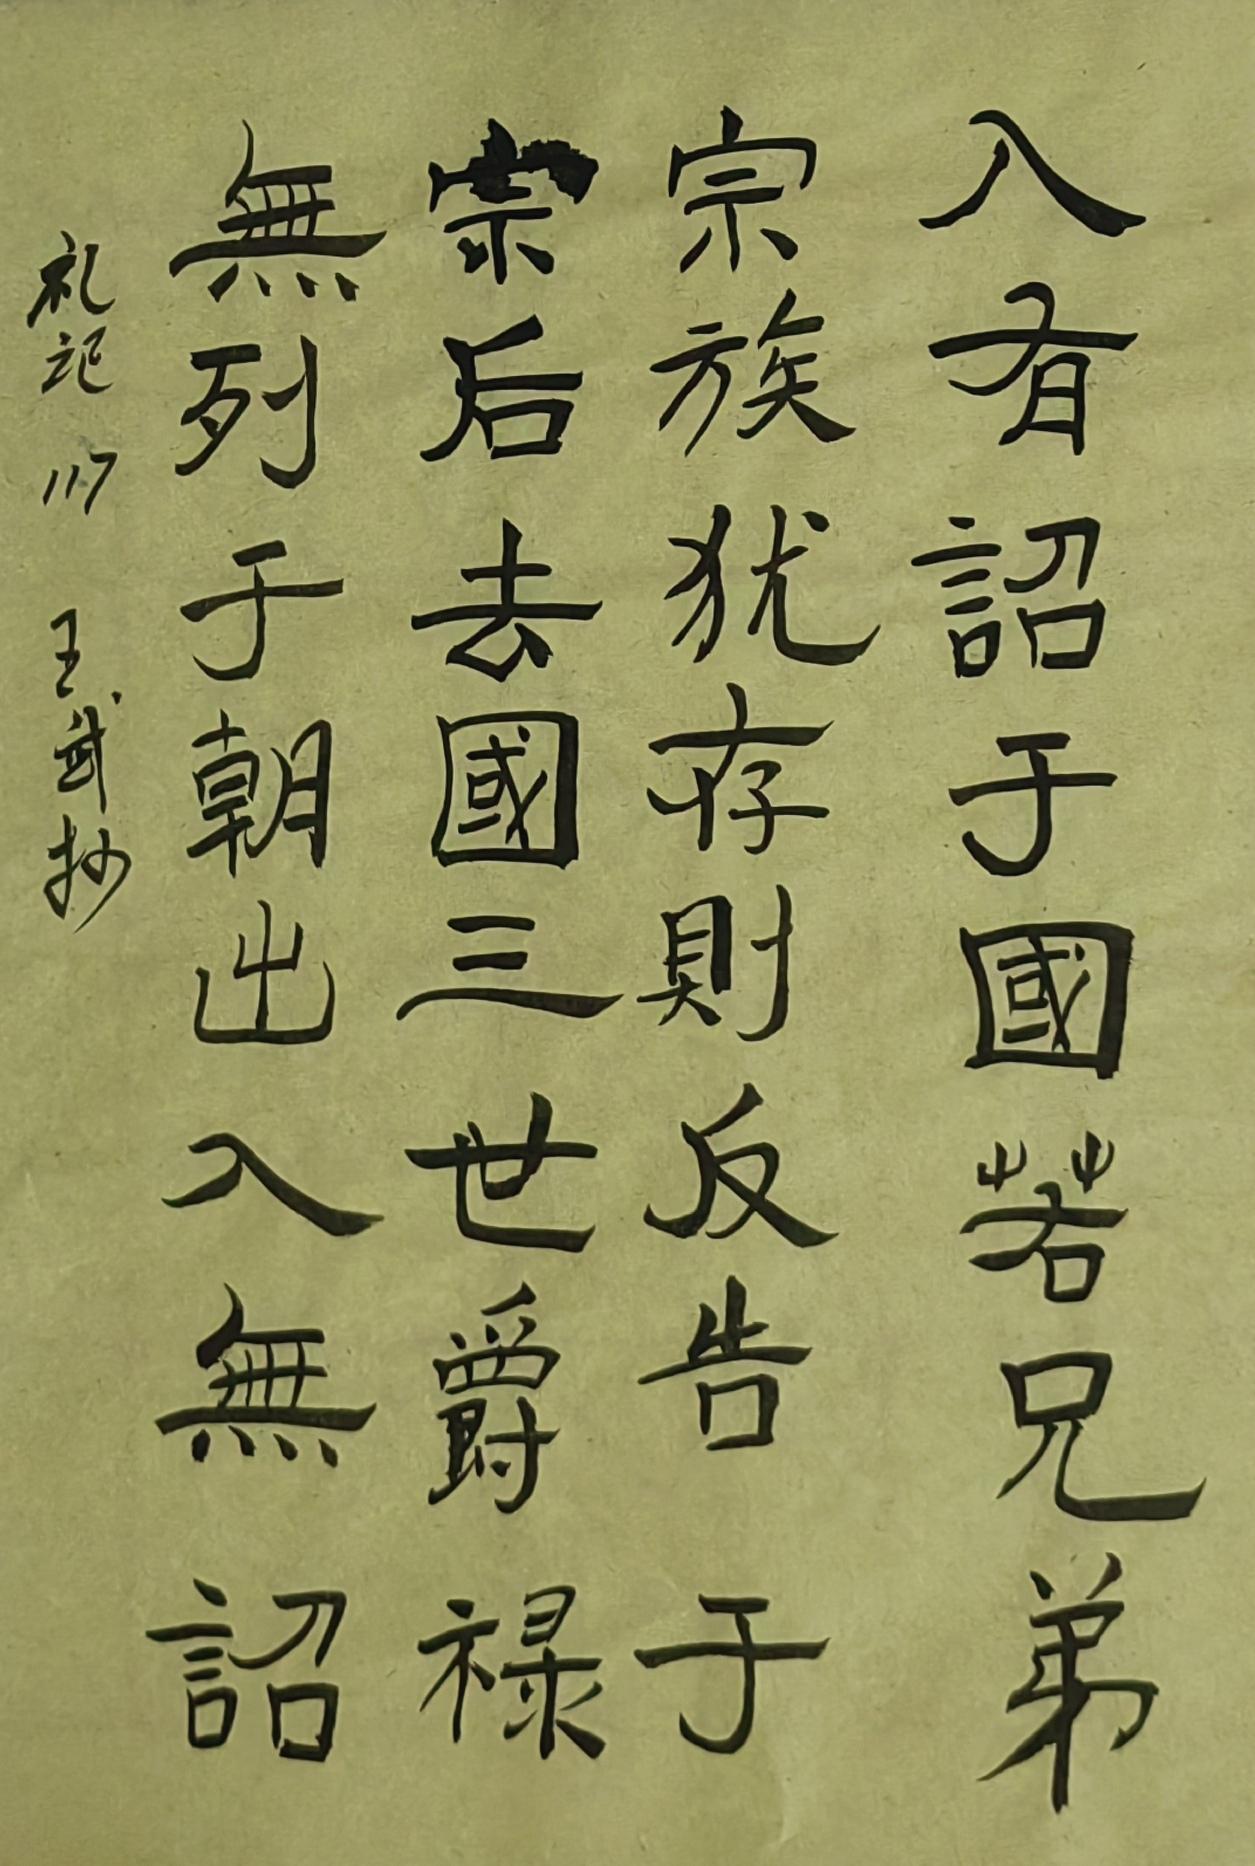 入有詔于國若兄弟
宗族犹存則反告于
宗后去國三世爵禄
無列于朝出入無詔
礼记 117 王武抄